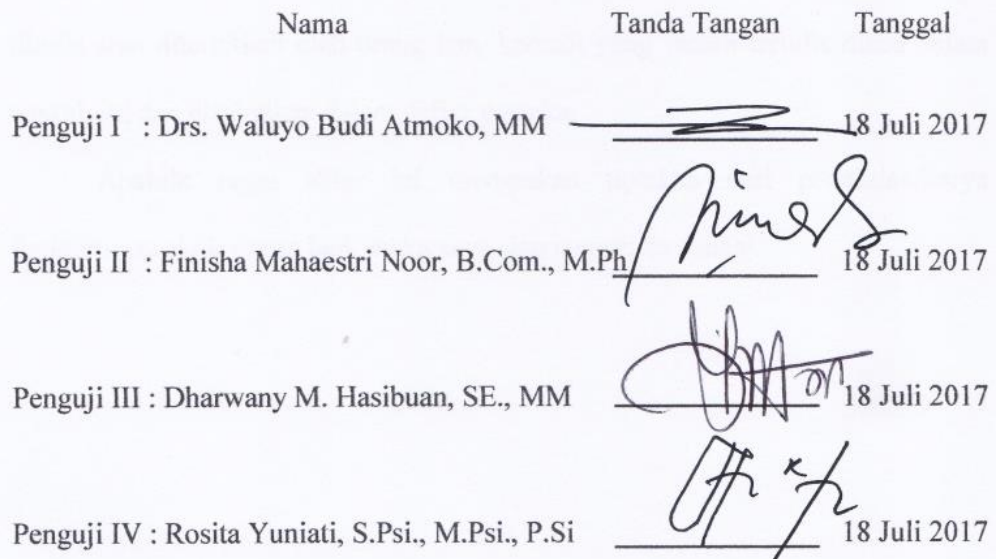 Nama Tanda Tangan Tanggal
Penguji I : Drs. Waluyo Budi Atmoko, MM 18 Juli 2017
Penguji II : Finisha Mahaestri Noor, B.Com., M.Ph 18 Juli 2017
Penguji III : Dharwany M. Hasibuan, SE., MM 18 Juli 2017
Penguji IV : Rosita Yuniati, S.Psi., M.Psi., P.Si 18 Juli 2017